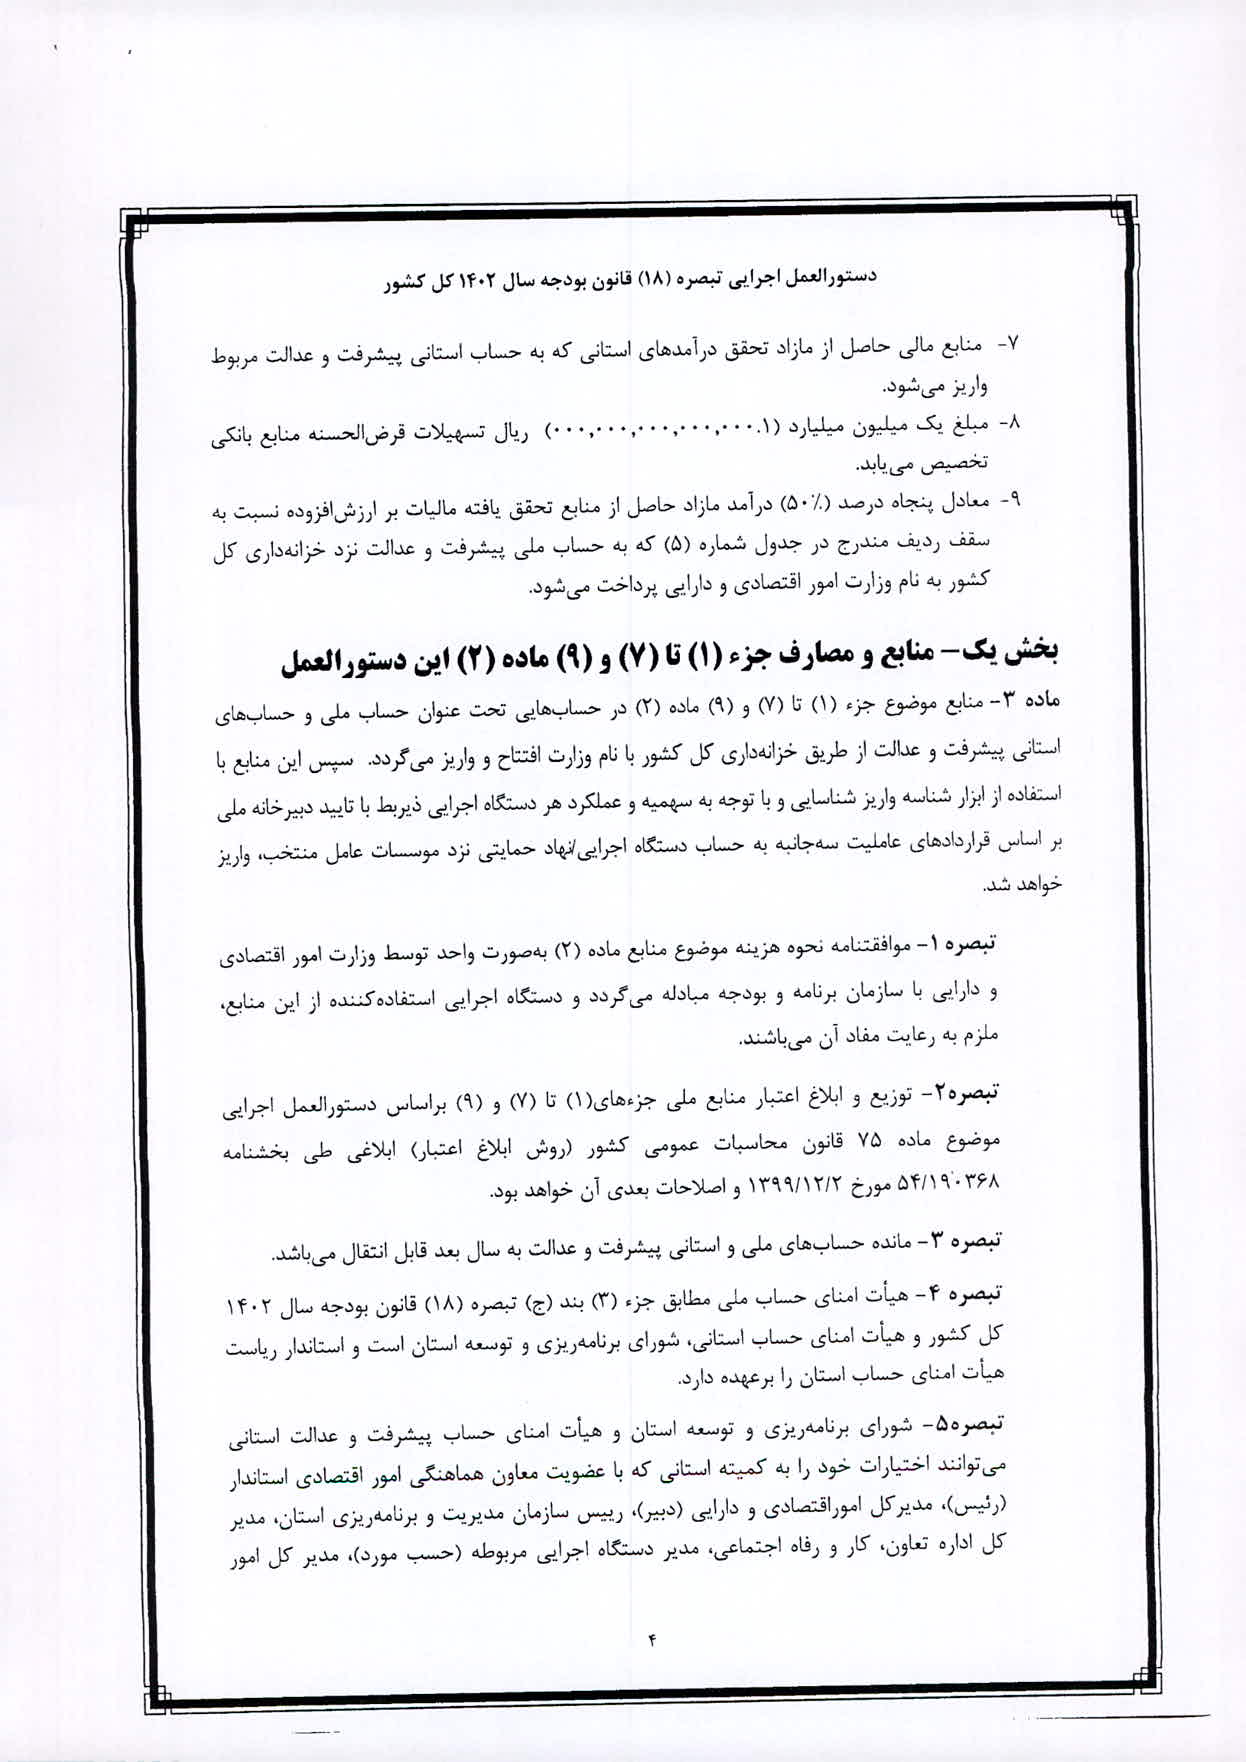 دستورالعمل اجرایی تبصره (۱۸) قانون بودجه سال ۱۴۰۲ کل کشور
۷- منابع مالی حاصل از مازاد تحقق درآمدهای استانی که به حساب استانی پیشرفت و عدالت مربوط
واریز می‌شود.
۸- مبلغ یک میلیون میلیارد (۱.۰۰۰,۰۰۰,۰۰۰,۰۰۰,۰۰۰) ریال تسهیلات قرض‌الحسنه منابع بانکی
تخصیص می‌یابد.
۹- معادل پنجاه درصد (۵۰٪) درآمد مازاد حاصل از منابع تحقق یافته مالیات بر ارزش‌افزوده نسبت به
سقف ردیف مندرج در جدول شماره (۵) که به حساب ملی پیشرفت و عدالت نزد خزانه‌داری کل
کشور به نام وزارت امور اقتصادی و دارایی پرداخت می‌شود.
بخش یک- منابع و مصارف جزء (۱) تا (۷) و (۹) ماده (۲) این دستورالعمل
ماده ۳- منابع موضوع جزء (۱) تا (۷) و (۹) ماده (۲) در حساب‌هایی تحت عنوان حساب ملی و حساب‌های
استانی پیشرفت و عدالت از طریق خزانه‌داری کل کشور با نام وزارت افتتاح و واریز می‌گردد. سپس این منابع با
استفاده از ابزار شناسه واریز شناسایی و با توجه به سهمیه و عملکرد هر دستگاه اجرایی ذیربط با تایید دبیرخانه ملی
بر اساس قراردادهای عاملیت سه‌جانبه به حساب دستگاه اجرایی/نهاد حمایتی نزد موسسات عامل منتخب، واریز
خواهد شد.
تبصره ۱- موافقتنامه نحوه هزینه موضوع منابع ماده (۲) به‌صورت واحد توسط وزارت امور اقتصادی
و دارایی با سازمان برنامه و بودجه مبادله می‌گردد و دستگاه اجرایی استفاده‌کننده از این منابع،
ملزم به رعایت مفاد آن می‌باشند.
تبصره۲- توزیع و ابلاغ اعتبار منابع ملی جزءهای(۱) تا (۷) و (۹) براساس دستورالعمل اجرایی
موضوع ماده ۷۵ قانون محاسبات عمومی کشور (روش ابلاغ اعتبار) ابلاغی طی بخشنامه
۵۴/۱۹۰۳۶۸ مورخ ۱۳۹۹/۱۲/۲ و اصلاحات بعدی آن خواهد بود.
تبصره ۳- مانده حساب‌های ملی و استانی پیشرفت و عدالت به سال بعد قابل انتقال می‌باشد.
تبصره ۴- هیأت امنای حساب ملی مطابق جزء (۳) بند (ج) تبصره (۱۸) قانون بودجه سال ۱۴۰۲
کل کشور و هیأت امنای حساب استانی، شورای برنامه‌ریزی و توسعه استان است و استاندار ریاست
هیأت امنای حساب استان را برعهده دارد.
تبصره۵- شورای برنامه‌ریزی و توسعه استان و هیأت امنای حساب پیشرفت و عدالت استانی
می‌توانند اختیارات خود را به کمیته استانی که با عضویت معاون هماهنگی امور اقتصادی استاندار
(رئیس)، مدیرکل اموراقتصادی و دارایی (دبیر)، رییس سازمان مدیریت و برنامه‌ریزی استان، مدیر
کل اداره تعاون، کار و رفاه اجتماعی، مدیر دستگاه اجرایی مربوطه (حسب مورد)، مدیر کل امور
۴